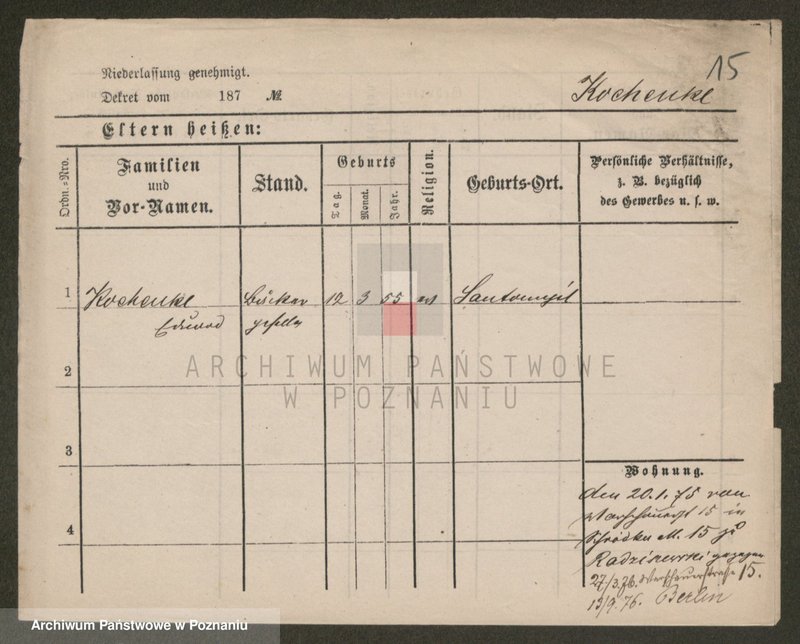 15
Niederlassung genehmigt.
Dekret vom 187 №
Kochenke
Eltern heißen:
Ordn.-Nro.
Familien
und
Vor-Namen.
Stand.
Geburts
Tag.
Monat.
Jahr.
Religion.
Geburts-Ort.
Persönliche Verhältnisse,
z. B. bezüglich
des Gewerbes u. s. w.
1 Kochenke Bäcker 12 3 55 Santomysl
geselle
ARCHIWUM PAŃSTWOWE
W POZNANIU
2
3
Wohnung.
den 20.1.75 von
15 in
Schrodka M. 15 zu
Radzinewski gezogen
27/3.76. Warschauerstraße 15.
13/9.76. Berlin
4
Archiwum Państwowe w Poznaniu